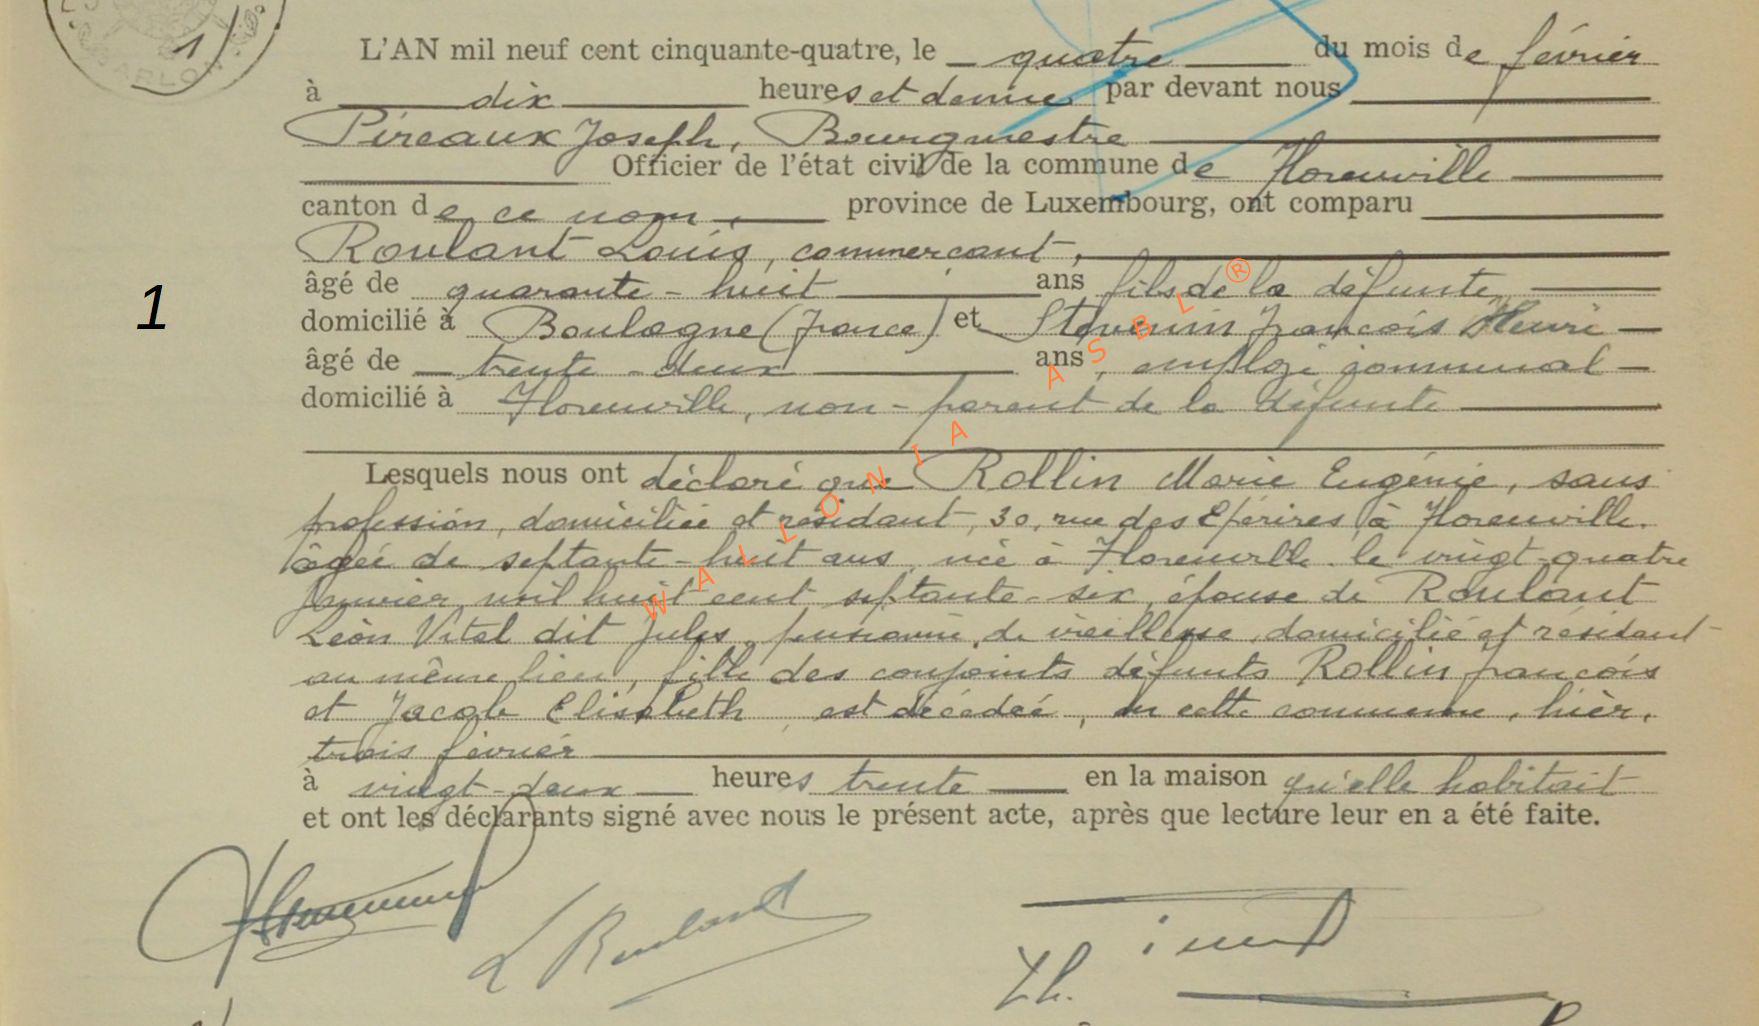 ARLON
1
L'AN mil neuf cent cinquante-quatre, le quatre du mois de février
à dix heures et demie par devant nous
Pireaux Joseph, Bourgmestre
Officier de l'état civil de la commune de Florenville
canton de ce nom, province de Luxembourg, ont comparu
Roulant Louis, commerçant,
âgé de quarante-huit ans fils de la défunte
1
domicilié à Boulogne (France) et Stévenin François Henri
âgé de trente-deux ans, employé communal
domicilié à Florenville, non-parent de la défunte
Lesquels nous ont déclaré que Rollin Marie Eugénie, sans
profession, domiciliée et résidant, 30, rue des Epérires, à Florenville.
âgée de septante-huit ans, née à Florenville le vingt-quatre
janvier mil huit cent septante-six, épouse de Roulant
Léon Vital dit Jules, pensionné de vieillesse, domicilié et résidant
au même lieu, fille des conjoints défunts Rollin François
et Jacob Elisabeth, est décédée, en cette commune, hier,
trois février
à vingt-deux heures trente en la maison qu'elle habitait
et ont les déclarants signé avec nous le présent acte, après que lecture leur en a été faite.
L Roulant
WALLONIA ASBL ®